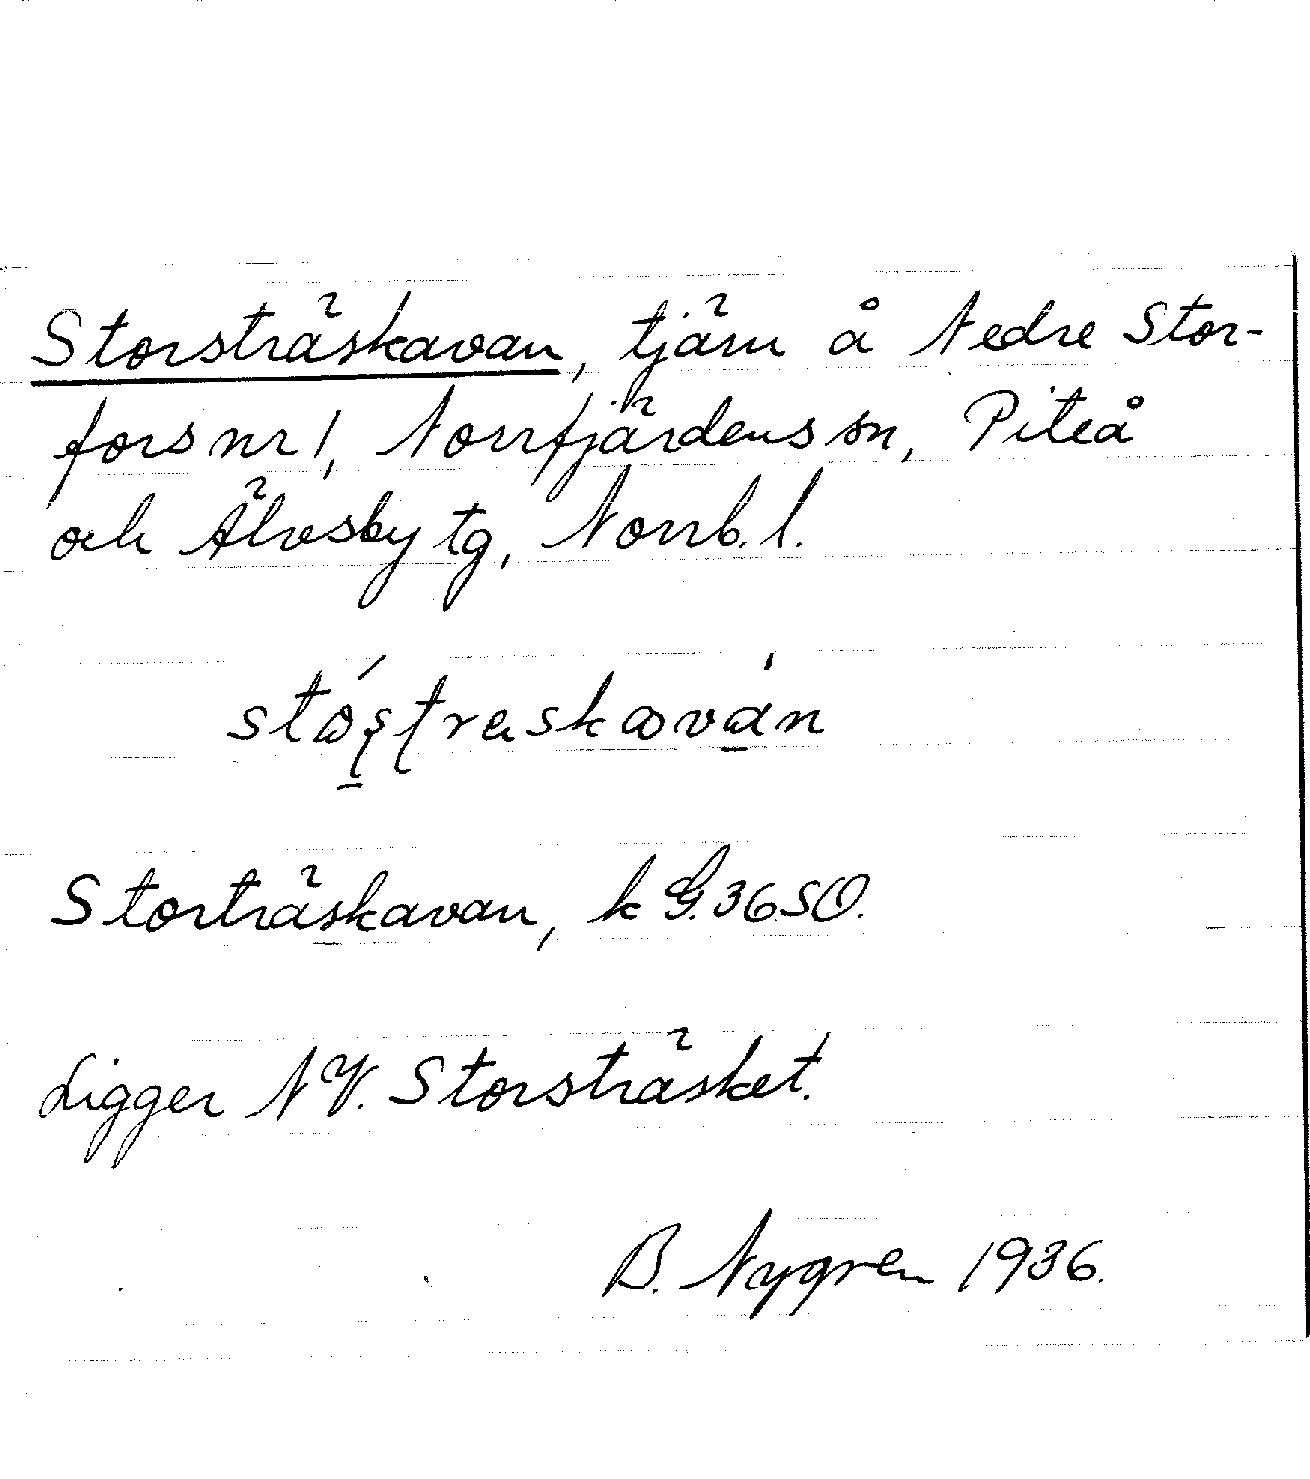 Storsträskavan, tjärn å Nedre Stor-
fors nr 1, Norrfjärdens sn, Piteå
och Älvsby tg, Norrb. l.
Storträskavan, k G. 36 SO.
Ligger NV. Storsträsket.
B. Nygren 1936.